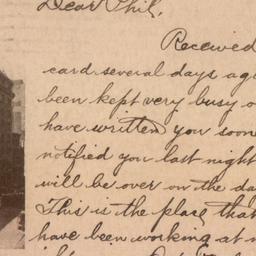 Dear Phil,
Received
card several days ag
been kept very busy o
have written you soon
notified you last night
will be over on the da
This is the place that
have been working at n